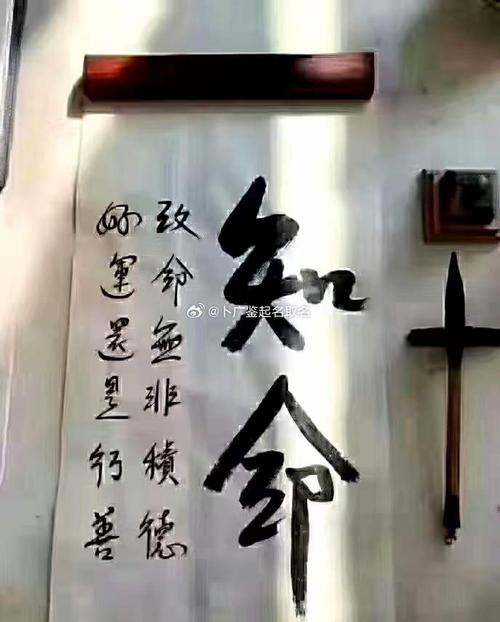 知命
改命無非積德
好運還是行善
@卜广鉴起名取名